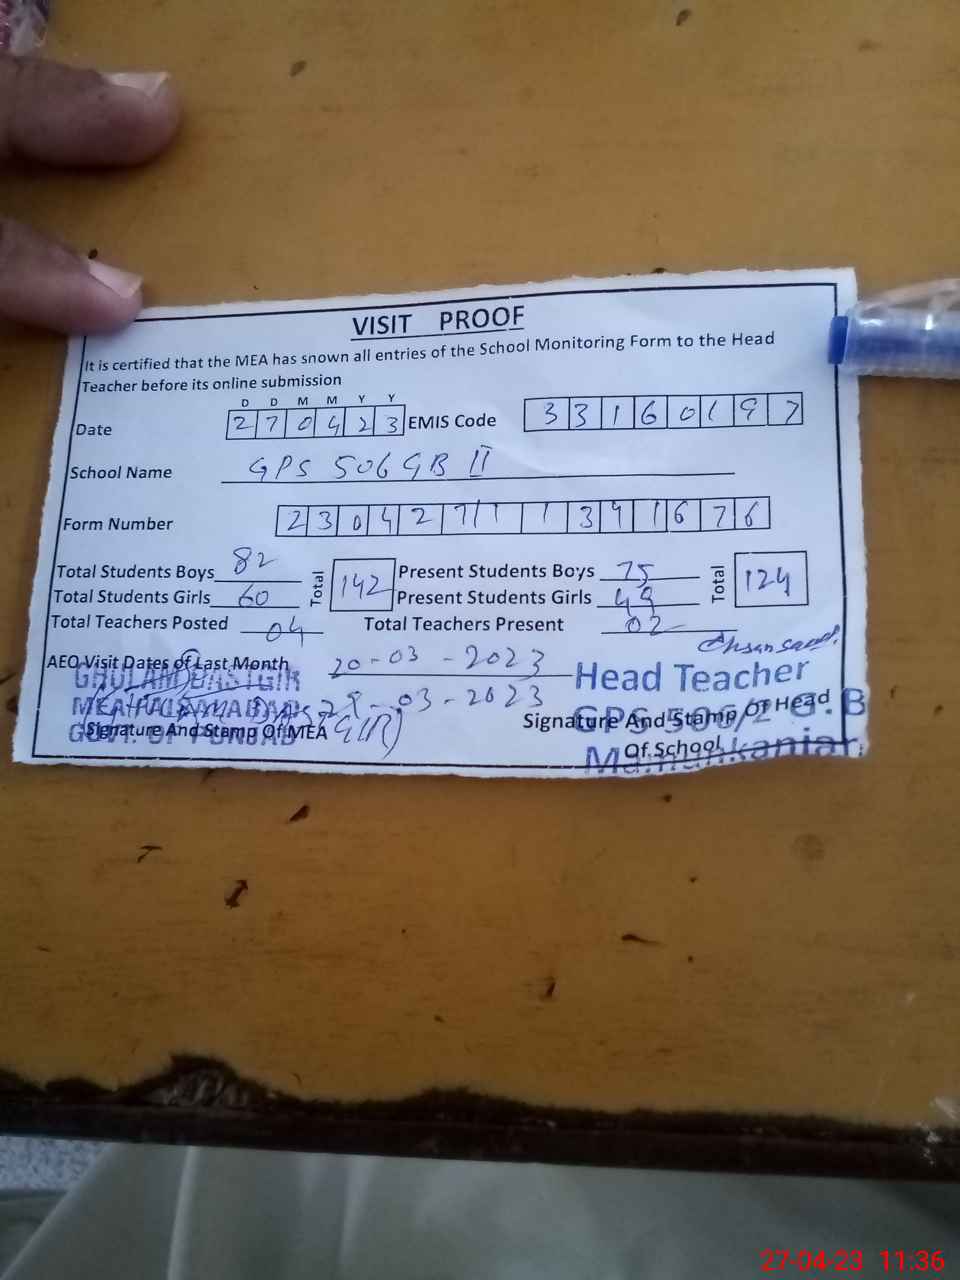 VISIT PROOF
It is certified that the MEA has snown all entries of the School Monitoring Form to the Head
Teacher before its online submission
D D M M Y Y
Date 2 7 0 4 2 3 EMIS Code 3 3 1 6 0 1 9 7
School Name GPS 506 GB II
Form Number 2 3 0 4 2 7 1 1 3 9 1 6 7 6
Total Students Boys 82 Total 142 Present Students Boys 75 Total 124
Total Students Girls 60 Present Students Girls 49
Total Teachers Posted 04 Total Teachers Present 02
Ehsan
AEO Visit Dates of Last Month 20-03-2023
28-03-2023
GHULAM DASTGIR
MEA FAISALABAD
GOVT. OF PUNJAB
Signature And Stamp Of MEA
Head Teacher
GPS 506/2 G.B
Mamunkanjan
Signature And Stamp Of Head
Of School
27-04-23 11:36